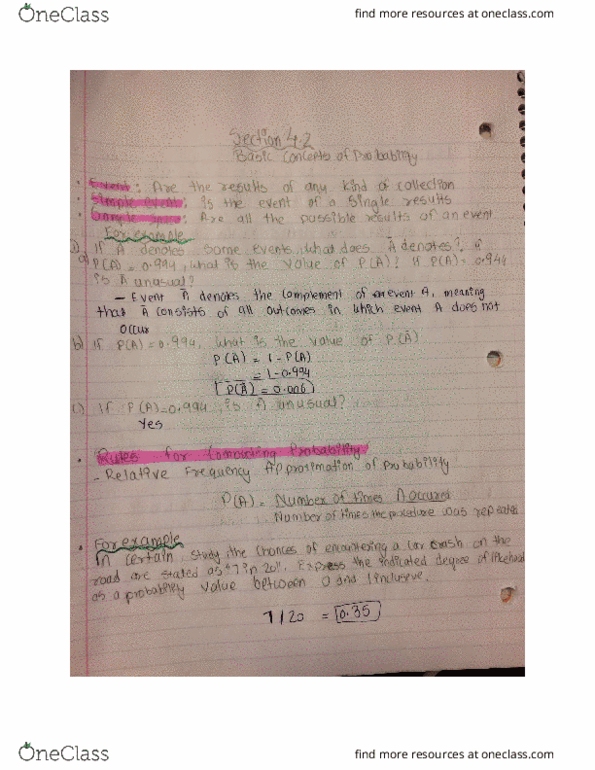 OneClass
find more resources at oneclass.com
Section 4.2
Basic Concepts of Probability
· Event : Are the results of any kind of collection
· Simple event : is the event of a single results
· Sample space : Are all the possible results of an event
For example
If A denotes some events, what does Ā denotes? if
a) P(A) = 0.994, what is the value of P(Ā)? If P(A) = 0.944
is Ā unusual?
- Event Ā denotes the complement of an event A, meaning
that Ā consists of all outcomes in which event A does not
occur
b) If P(A) = 0.994, what is the value of P(Ā)
P(Ā) = 1 - P(A)
= 1 - 0.994
P(Ā) = 0.006
c) If P(A) = 0.994, is Ā unusual?
Yes
· Rules for Computing Probability
- Relative Frequency Approximation of Probability
P(A) = Number of times A occured
Number of times the procedure was repeated
· For example
In certain study, the chances of encountering a car crash on the
road are stated as "7 in 20". Express the indicated degree of likelihood
as a probability value between 0 and 1 inclusive.
7/20 = 0.35
OneClass
find more resources at oneclass.com